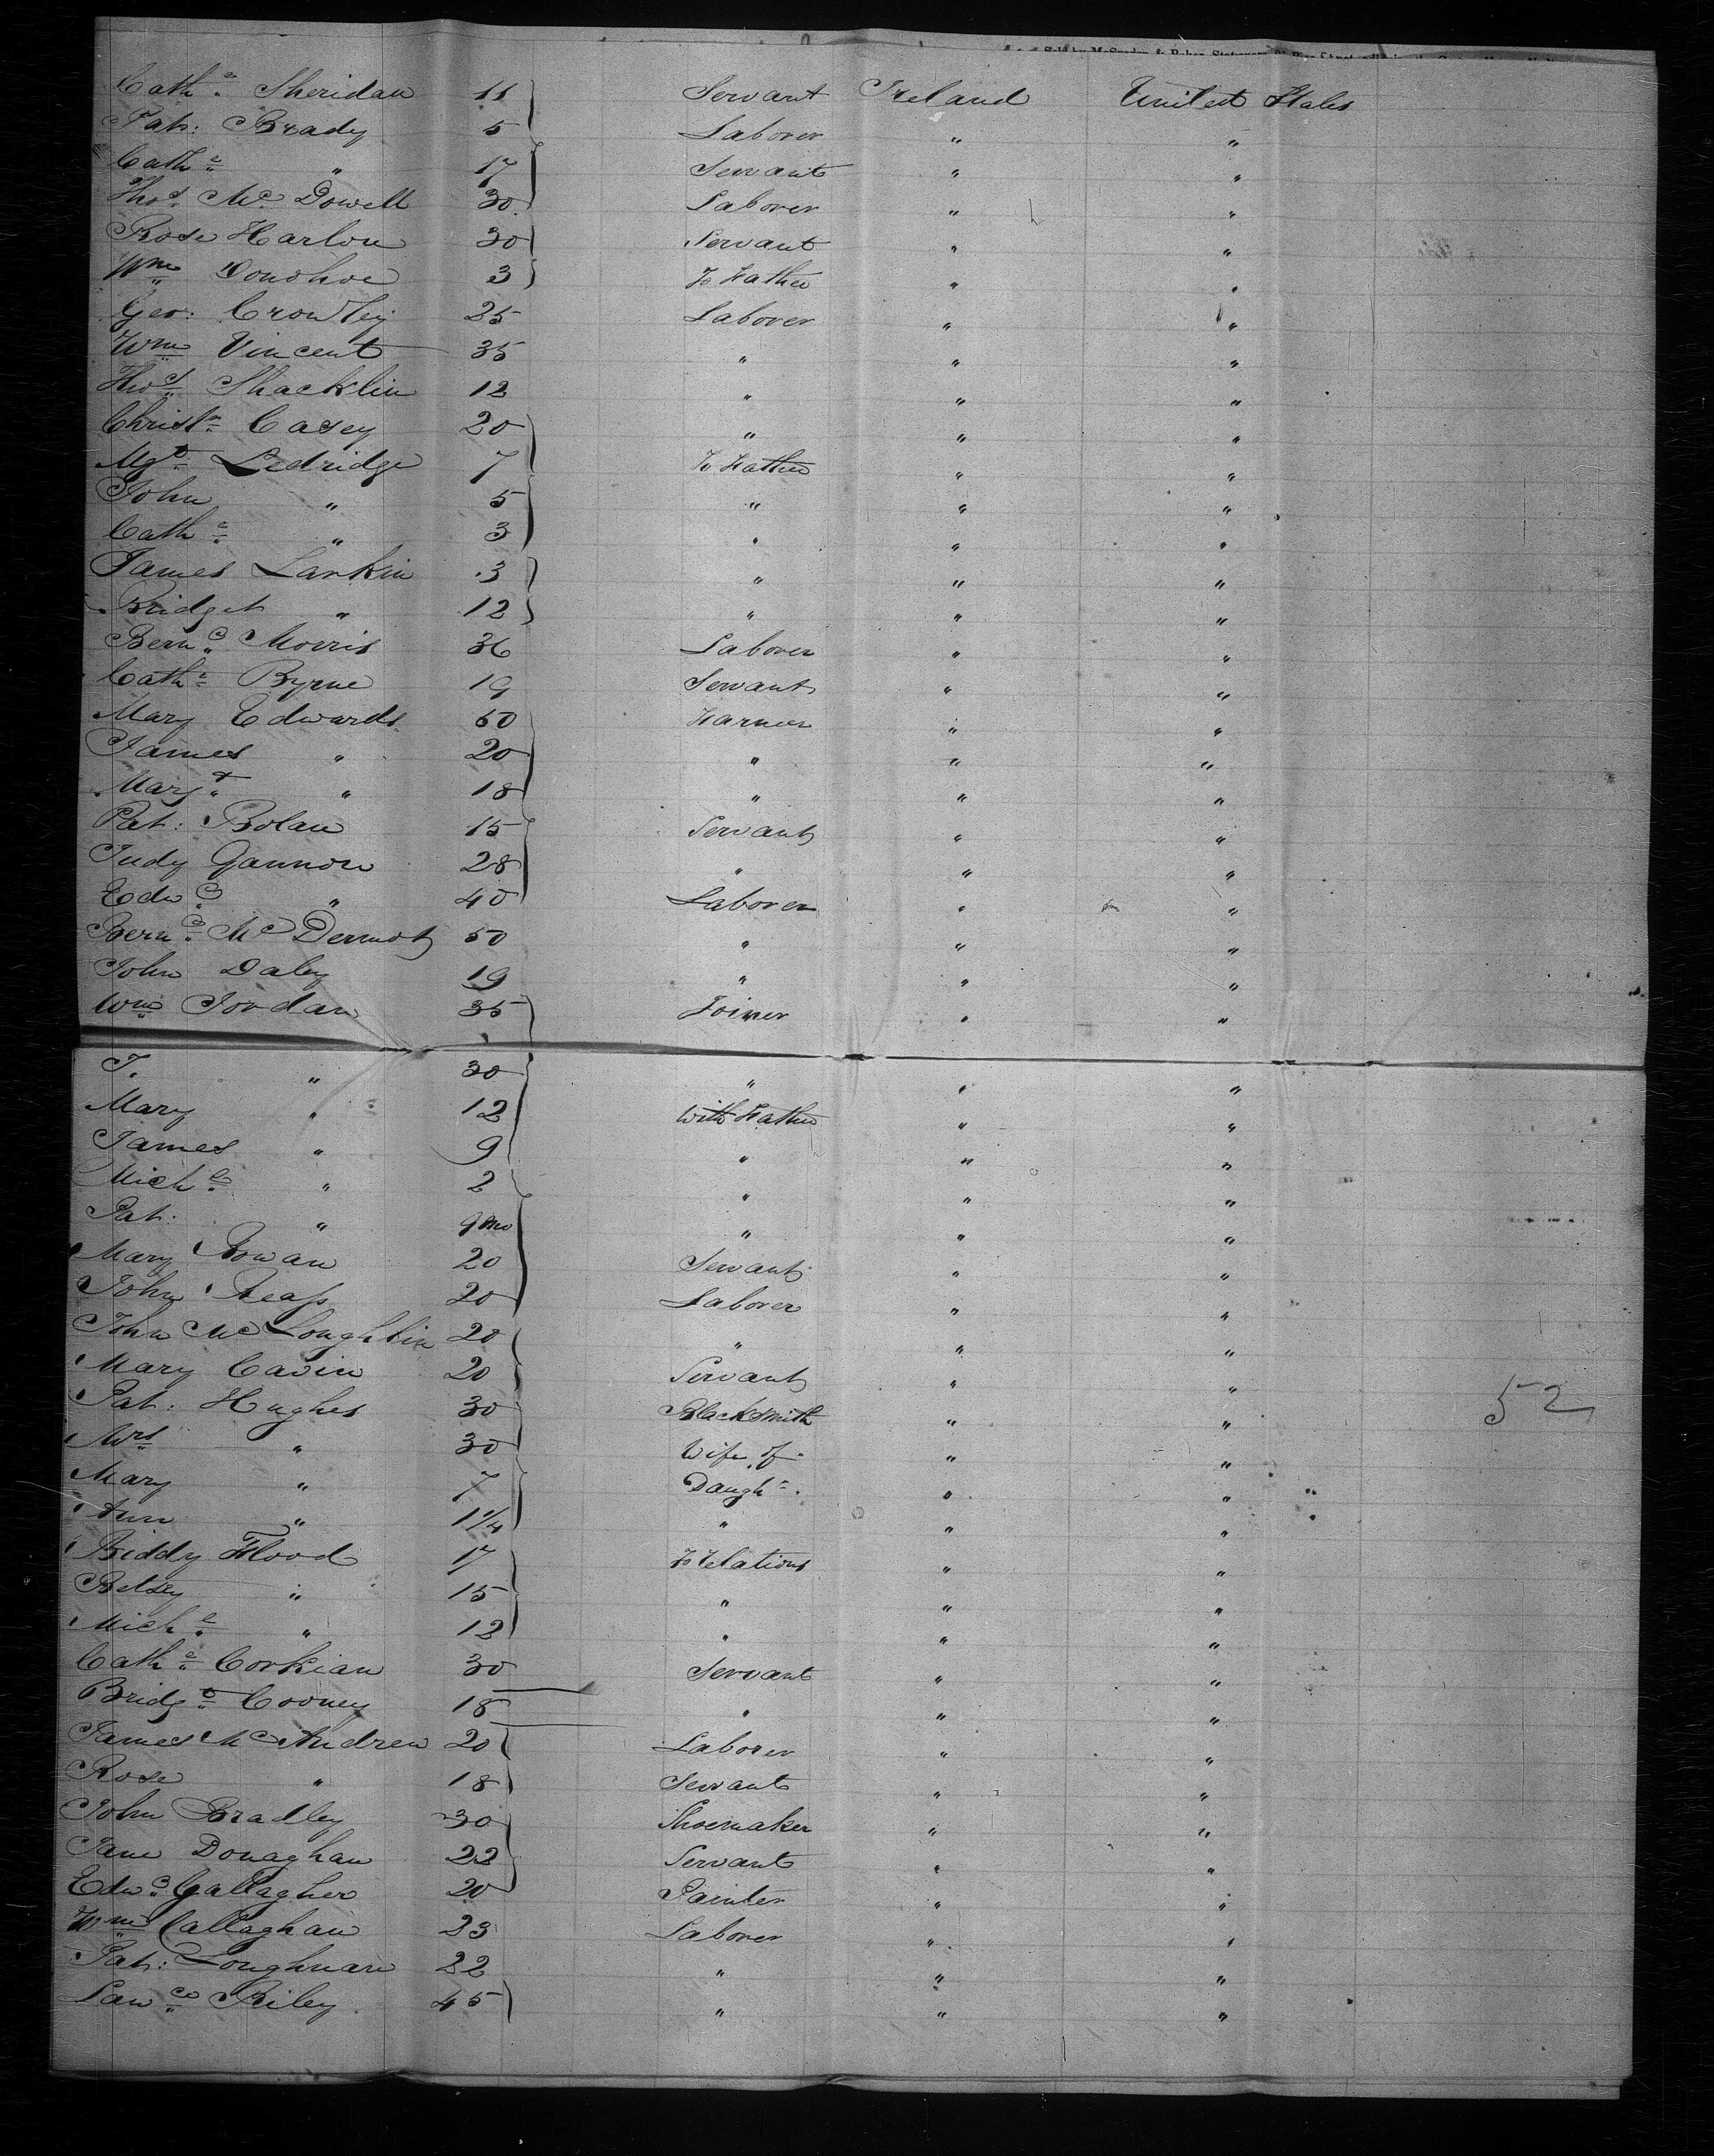 Sold by McSpedon & Baker, Stationers
Cathe Sheridan 11 Servant Ireland United States
Pat: Brady 5 Laborer " "
Cathe " 17 Servant " "
Thos Mc Dowell 30 Laborer " "
Rose Harlon 30 Servant " "
Wm Donohoe 3 To Father " "
Geo: Crowley 25 Laborer " "
Wm Vincent 35 " " "
Thos Shacklin 12 " " "
Christr Casey 20 " " "
Mgt Ledridge 7 To Father " "
John " 5 " " "
Cathe " 3 " " "
James Larkin 3 " " "
Bridget " 12 " " "
Bernd Morris 36 Laborer " "
Cathe Byrne 19 Servant " "
Mary Edwards 50 Farmer " "
James " 20 " " "
Margt " 18 " " "
Pat: Bolan 15 Servant " "
Judy Gannon 28 " " "
Edwd " 40 Laborer " "
Bernd Mc Dermot 50 " " "
John Daley 19 " " "
Wm Jordan 35 Joiner " "
T. " 30 " " "
Mary " 12 With Father " "
James " 9 " " "
Michl " 2 " " "
Pat: " 9 mo " " "
Mary Rowan 20 Servant " "
John Reap 20 Laborer " "
John Mc Loughlin 20 " " "
Mary Cavin 20 Servant " "
Pat: Hughes 30 Blacksmith " "
52
Mrs " 30 Wife of " "
Mary " 7 Daughr. " "
Ann " 1 1/4 " " "
Biddy Flood 17 To relations " "
Betsey " 15 " " "
Michl " 12 " " "
Cathe Corkian 30 Servant " "
Bridgt Cooney 18 " " "
James Mc Andrew 20 Laborer " "
Rose " 18 Servant " "
John Bradley 30 Shoemaker " "
Jane Donaghan 22 Servant " "
Edwd Gallagher 20 Painter " "
Wm Callaghan 23 Laborer " "
Pat: Loughnan 22 " " "
Lawce Riley 45 " " "